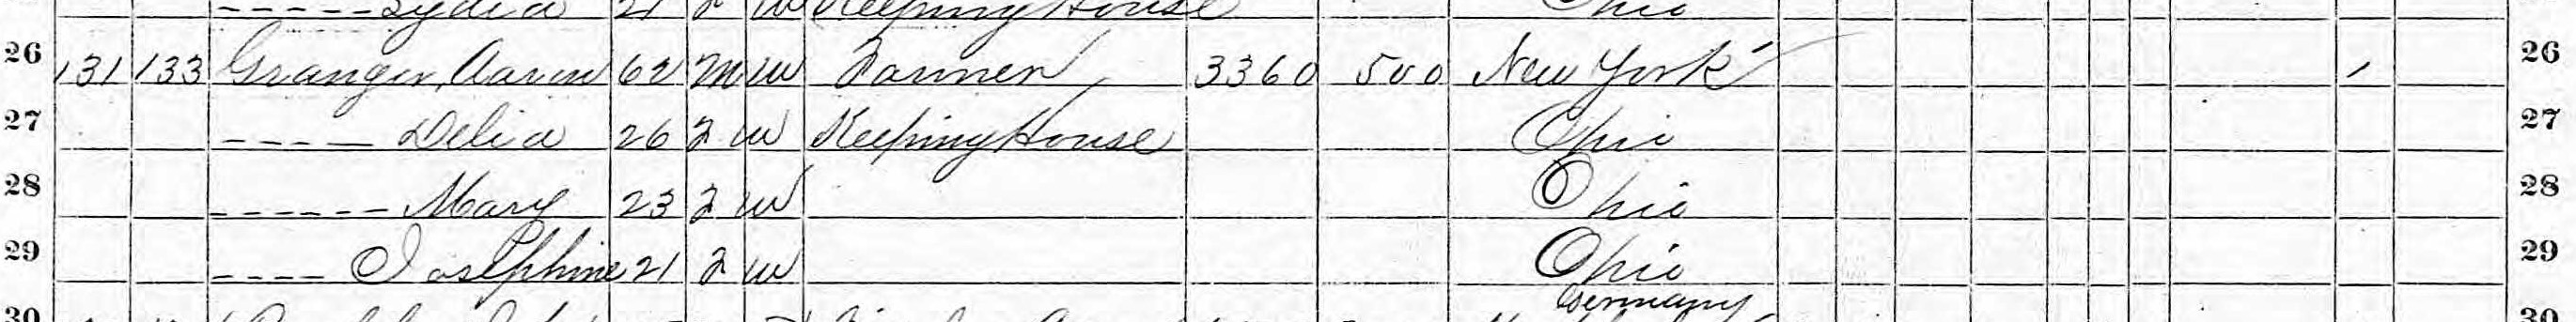 Lydia 21 F W Keeping House Ohio
26 131 133 Granger, Aaron 62 M W Farmer 3360 500 New York / 26
27 ---- Delia 26 F W Keeping House Ohio 27
28 ------ Mary 23 F W Ohio 28
29 ---- Josephine 21 F W Ohio 29
Germany
30 30